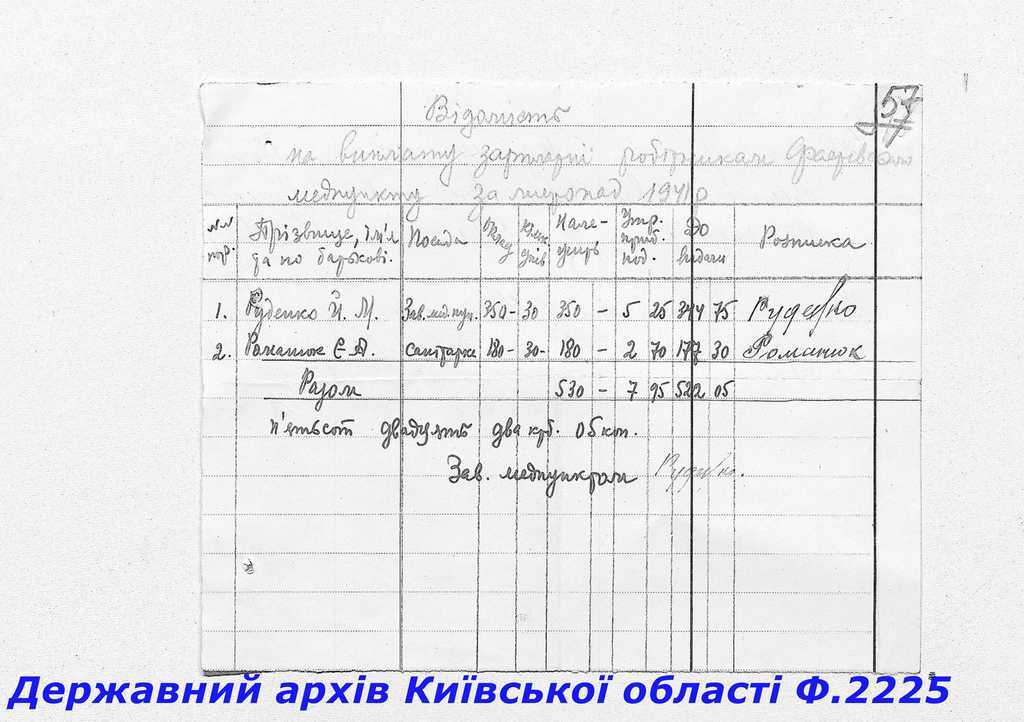 57
Відомість
на виплату зарплатні робітникам
медпункту за листопад 194
№№ пор. Прізвище, ім'я та по батькові. Посада Оклад Кільк. днів Належить Утр. приб. под. До видачи Розписка
1. Руденко Й. М. Зав. мед. пун. 350- 30 350 - 5 25 344 75 Руденко
2. Романюк Є. А. санітарка 180- 30- 180 - 2 70 177 30 Романюк
Разом 530 - 7 95 522 05
п'ятьсот двадцять два крб. 05 коп.
Зав. медпунктом Руденко.
Державний архів Київської області Ф.2225